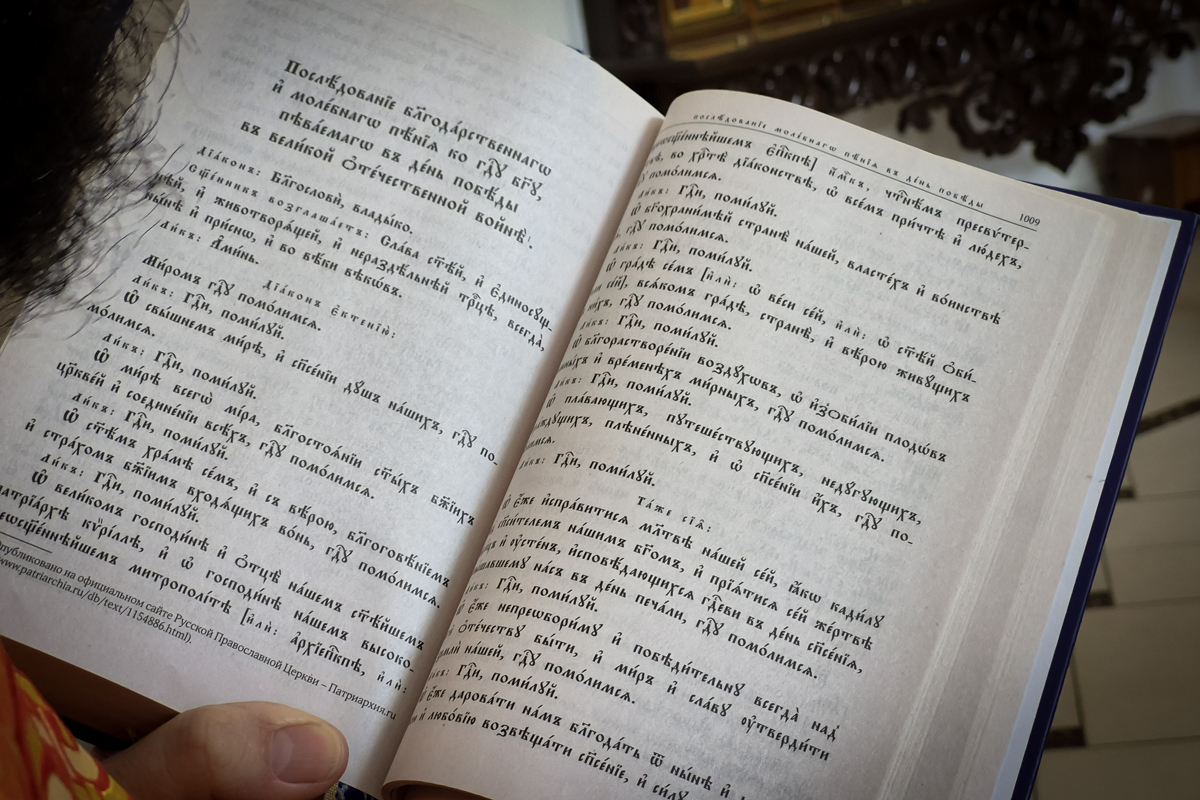 Послѣ́дованїе бл҃года́рственнагѡ
и҆ моле́бнагѡ пѣ́нїѧ ко гдⷭ҇ꙋ бг҃ꙋ,
пѣва́емагѡ въ де́нь побѣ́ды
въ вели́кой Ѻ҆те́чественной войнѣ̀.
Дїа́конъ: Бл҃гословѝ, влады́ко.
Сщ҃е́нникъ возглаша́етъ: Сла́ва ст҃ѣ́й, и҆ є҆диносꙋ́щ-
нѣй, и҆ животворѧ́щей, и҆ нераздѣ́льнѣй трⷪ҇цѣ, всегда̀,
ны́нѣ и҆ при́снѡ, и҆ во вѣ́ки вѣкѡ́въ.
Ли́къ: А҆ми́нь.
Дїа́конъ є҆ктенїю̀:
Ми́ромъ гдⷭ҇ꙋ помо́лимсѧ.
Ли́къ: Гдⷭ҇и, поми́лꙋй.
Ѡ҆ свы́шнемъ ми́рѣ, и҆ сп҃се́нїи дꙋ́шъ на́шихъ, гдⷭ҇ꙋ по-
мо́лимсѧ.
Ли́къ: Гдⷭ҇и, поми́лꙋй.
Ѡ҆ ми́рѣ всегѡ̀ мі́ра, бл҃гостоѧ́нїи ст҃ы́хъ бж҃їихъ
цр҃кве́й и҆ соедине́нїи всѣ́хъ, гдⷭ҇ꙋ помо́лимсѧ.
Ли́къ: Гдⷭ҇и, поми́лꙋй.
Ѡ҆ ст҃ѣ́мъ хра́мѣ се́мъ, и҆ съ вѣ́рою, бл҃гоговѣ́нїемъ
и҆ стра́хомъ бж҃їимъ входѧ́щихъ во́нь, гдⷭ҇ꙋ помо́лимсѧ.
Ли́къ: Гдⷭ҇и, поми́лꙋй.
Ѡ҆ вели́комъ господи́нѣ и҆ ѻ҆тцѣ̀ на́шемъ ст҃ѣ́йшемъ
патрїа́рхѣ кѷрі́ллѣ, и҆ ѡ҆ господи́нѣ на́шемъ высоко-
преѡсщ҃е́ннѣйшемъ митрополі́тѣ [и҆лѝ: а҆рхїепⷭ҇кпѣ, и҆лѝ:
Опубликовано на официальном сайте Русской Православной Церкви – Патриархия.ru
www.patriarchia.ru/db/text/1154886.html).
послѣ́дованїе моле́бнагѡ пѣ́нїѧ въ де́нь побѣ́ды 1009
є҆пⷭ҇кпѣ] и҆́м҃къ, чтⷭ҇нѣ́мъ пресвѷ́тер-
во хрⷭ҇тѣ̀ дїа́конствѣ, ѡ҆ все́мъ при́чтѣ и҆ лю́дехъ,
помо́лимсѧ.
Ли́къ: Гдⷭ҇и, поми́лꙋй.
Ѡ҆ бг҃охрани́мѣй странѣ̀ на́шей, власте́хъ и҆ во́инствѣ
гдⷭ҇ꙋ помо́лимсѧ.
Ли́къ: Гдⷭ҇и, поми́лꙋй.
Ѡ҆ гра́дѣ се́мъ [и҆лѝ: ѡ҆ ве́си се́й, и҆лѝ: ѡ҆ ст҃ѣ́й ѻ҆би́-
се́й], всѧ́комъ гра́дѣ, странѣ̀, и҆ вѣ́рою живꙋ́щихъ
ни́хъ, гдⷭ҇ꙋ помо́лимсѧ.
Ли́къ: Гдⷭ҇и, поми́лꙋй.
Ѡ҆ бл҃горастворе́нїи воздꙋ́хѡвъ, ѡ҆ и҆з̾ѻби́лїи плодѡ́въ
земны́хъ и҆ вре́менѣхъ ми́рныхъ, гдⷭ҇ꙋ помо́лимсѧ.
Ли́къ: Гдⷭ҇и, поми́лꙋй.
Ѡ҆ пла́вающихъ, пꙋтеше́ствꙋющихъ, недꙋ́гꙋющихъ,
стра́ждꙋщихъ, плѣне́нныхъ, и҆ ѡ҆ сп҃се́нїи и҆́хъ, гдⷭ҇ꙋ по-
мо́лимсѧ.
Ли́къ: Гдⷭ҇и, поми́лꙋй.
Та́же сїѧ̑:
Ѡ҆ є҆́же и҆спра́витисѧ мл҃твѣ на́шей се́й, ꙗ҆́кѡ кади́лꙋ
сп҃си́телемъ на́шимъ бг҃омъ, и҆ прїѧ́тисѧ се́й же́ртвѣ
и҆ ᲂу҆сте́нъ, и҆сповѣ́дающихсѧ гдⷭ҇еви въ де́нь сп҃се́нїѧ,
на́съ въ де́нь печа́ли, гдⷭ҇ꙋ помо́лимсѧ.
Ли́къ: Гдⷭ҇и, поми́лꙋй.
Ѡ҆ є҆́же непреѡбори́мꙋ и҆ побѣди́тельнꙋ всегда̀ над̾
ѻ҆те́чествꙋ бы́ти, и҆ ми́ръ и҆ сла́вꙋ ᲂу҆тверди́ти
землѝ на́шей, гдⷭ҇ꙋ помо́лимсѧ.
Ли́къ: Гдⷭ҇и, поми́лꙋй.
Ѡ҆ є҆́же дарова́ти на́мъ бл҃года́ть ѿ ны́нѣ и҆
и҆ любо́вїю возвѣща́ти сп҃се́нїе, и҆ си́лꙋ